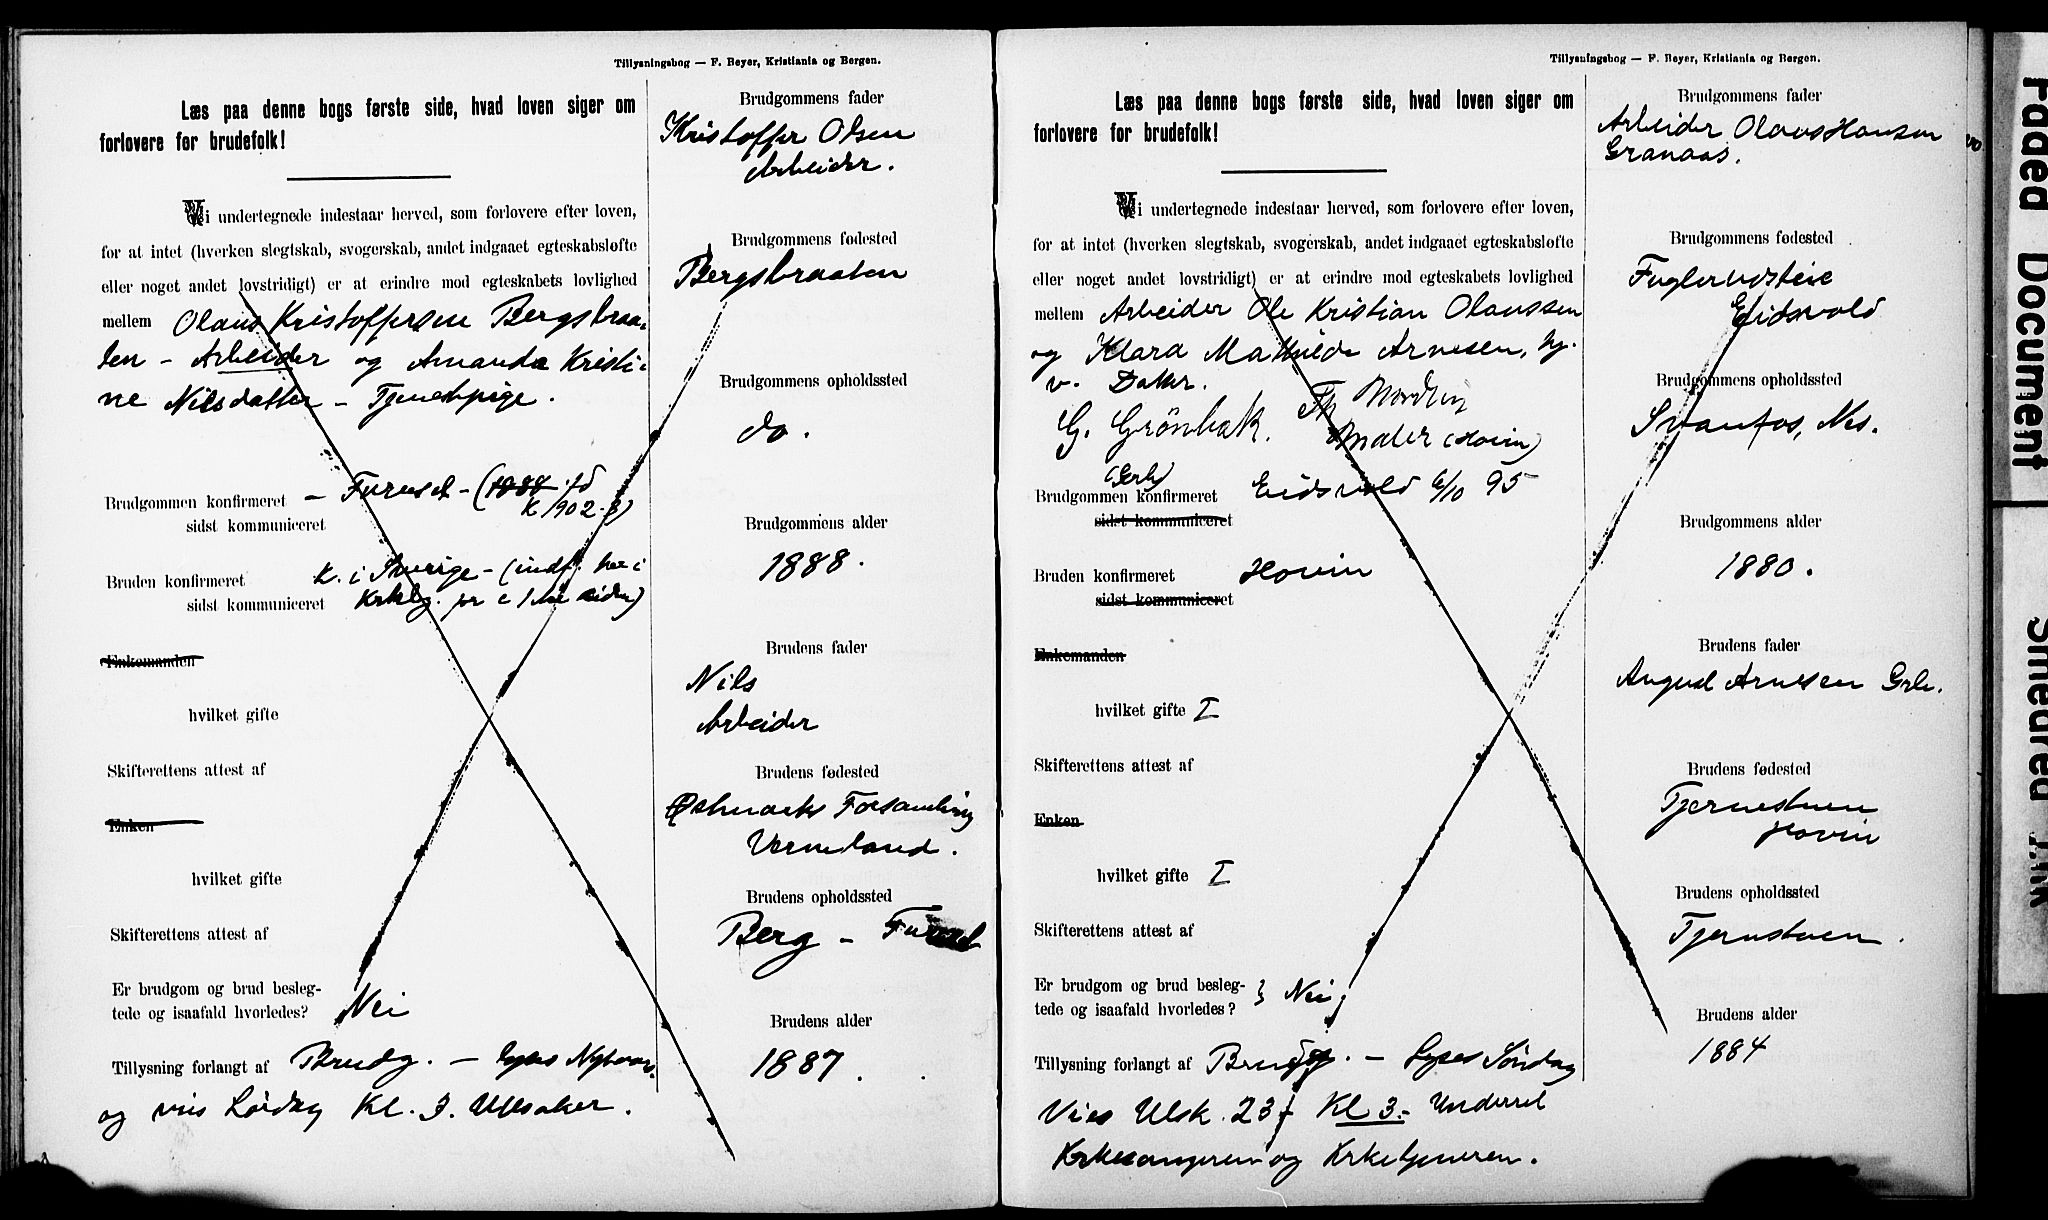 Tillysningsbog — F. Beyer, Kristiania og Bergen.
Læs paa denne bogs første side, hvad loven siger om
forlovere for brudefolk!
Vi undertegnede indestaar herved, som forlovere efter loven,
for at intet (hverken slegtskab, svogerskab, andet indgaaet egteskabsløfte
eller noget andet lovstridigt) er at erindre mod egteskabets lovlighed
mellem Olaus Kristoffersen Bergsbraa-
ten - Arbeider og Amanda Kristi-
ne Nilsdatter - Tjenestpige.
Brudgommen konfirmeret - Furuset - (1888 fd
sidst kommuniceret K 1902
Bruden konfirmeret K. i Sverige - (indf. her i
sidst kommuniceret siden)
Enkemanden
hvilket gifte
Skifterettens attest af
Enken
hvilket gifte
Skifterettens attest af
Er brudgom og brud besleg-
tede og isaafald hvorledes? Nei
Tillysning forlangt af Brudg. — lyses Nytaar
og vies Lørdag Kl. 3. Ullsaker.
Brudgommens fader
Kristoffer Olsen
Arbeider.
Brudgommens fødested
Bergsbraaten
Brudgommens opholdssted
do.
Brudgommens alder
1888.
Brudens fader
Nils
Arbeider
Brudens fødested
Østmarks Forsamling
Vermeland.
Brudens opholdssted
Berg - Furuset
Brudens alder
1887.
Tillysningsbog — F. Beyer, Kristiania og Bergen.
Læs paa denne bogs første side, hvad loven siger om
forlovere for brudefolk!
Vi undertegnede indestaar herved, som forlovere efter loven,
for at intet (hverken slegtskab, svogerskab, andet indgaaet egteskabsløfte
eller noget andet lovstridigt) er at erindre mod egteskabets lovlighed
mellem Arbeider Ole Kristian Olaussen
og Klara Mathilde Arnesen, hj.
v. Datter.
G. Grönbæk. Th Nordby
Maler (Hovin)
(Grb)
Brudgommen konfirmeret Eidsvold 6/10 95
sidst kommuniceret
Bruden konfirmeret Hovin
sidst kommuniceret
Enkemanden
hvilket gifte I
Skifterettens attest af
Enken
hvilket gifte I
Skifterettens attest af
Er brudgom og brud besleg-
tede og isaafald hvorledes? } Nei
Tillysning forlangt af Brudg. — Lyses Söndag
Vies Ulsk. 23 Kl 3.- Underret
Kirkesangeren og Kirketjeneren.
Brudgommens fader
Arbeider Olaus Hansen
Granaas.
Brudgommens fødested
Eidsvold
Brudgommens opholdssted
Svanfos, Nes.
Brudgommens alder
1880.
Brudens fader
August Arnesen Grb.
Brudens fødested
Tjernstuen
Hovin
Brudens opholdssted
Tjernstuen.
Brudens alder
1884
Faded Document
Smeared Ink